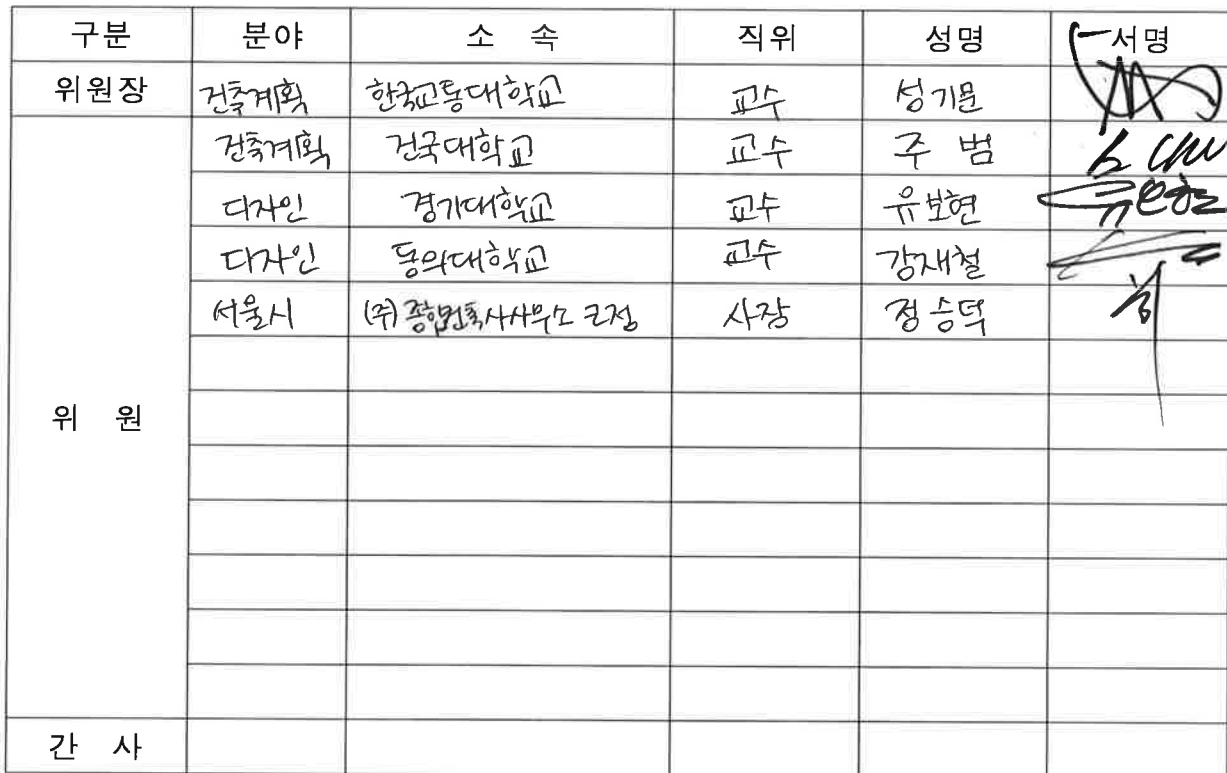 구분 분야 소 속 직위 성명 서명
위원장 건축계획 한국교통대학교 교수 성기문
건축계획 건국대학교 교수 주 범
디자인 경기대학교 교수 유보현
디자인 동의대학교 교수 강재철
서울시 (주)종합건축사사무소 근정 사장 정승덕
위 원
간 사